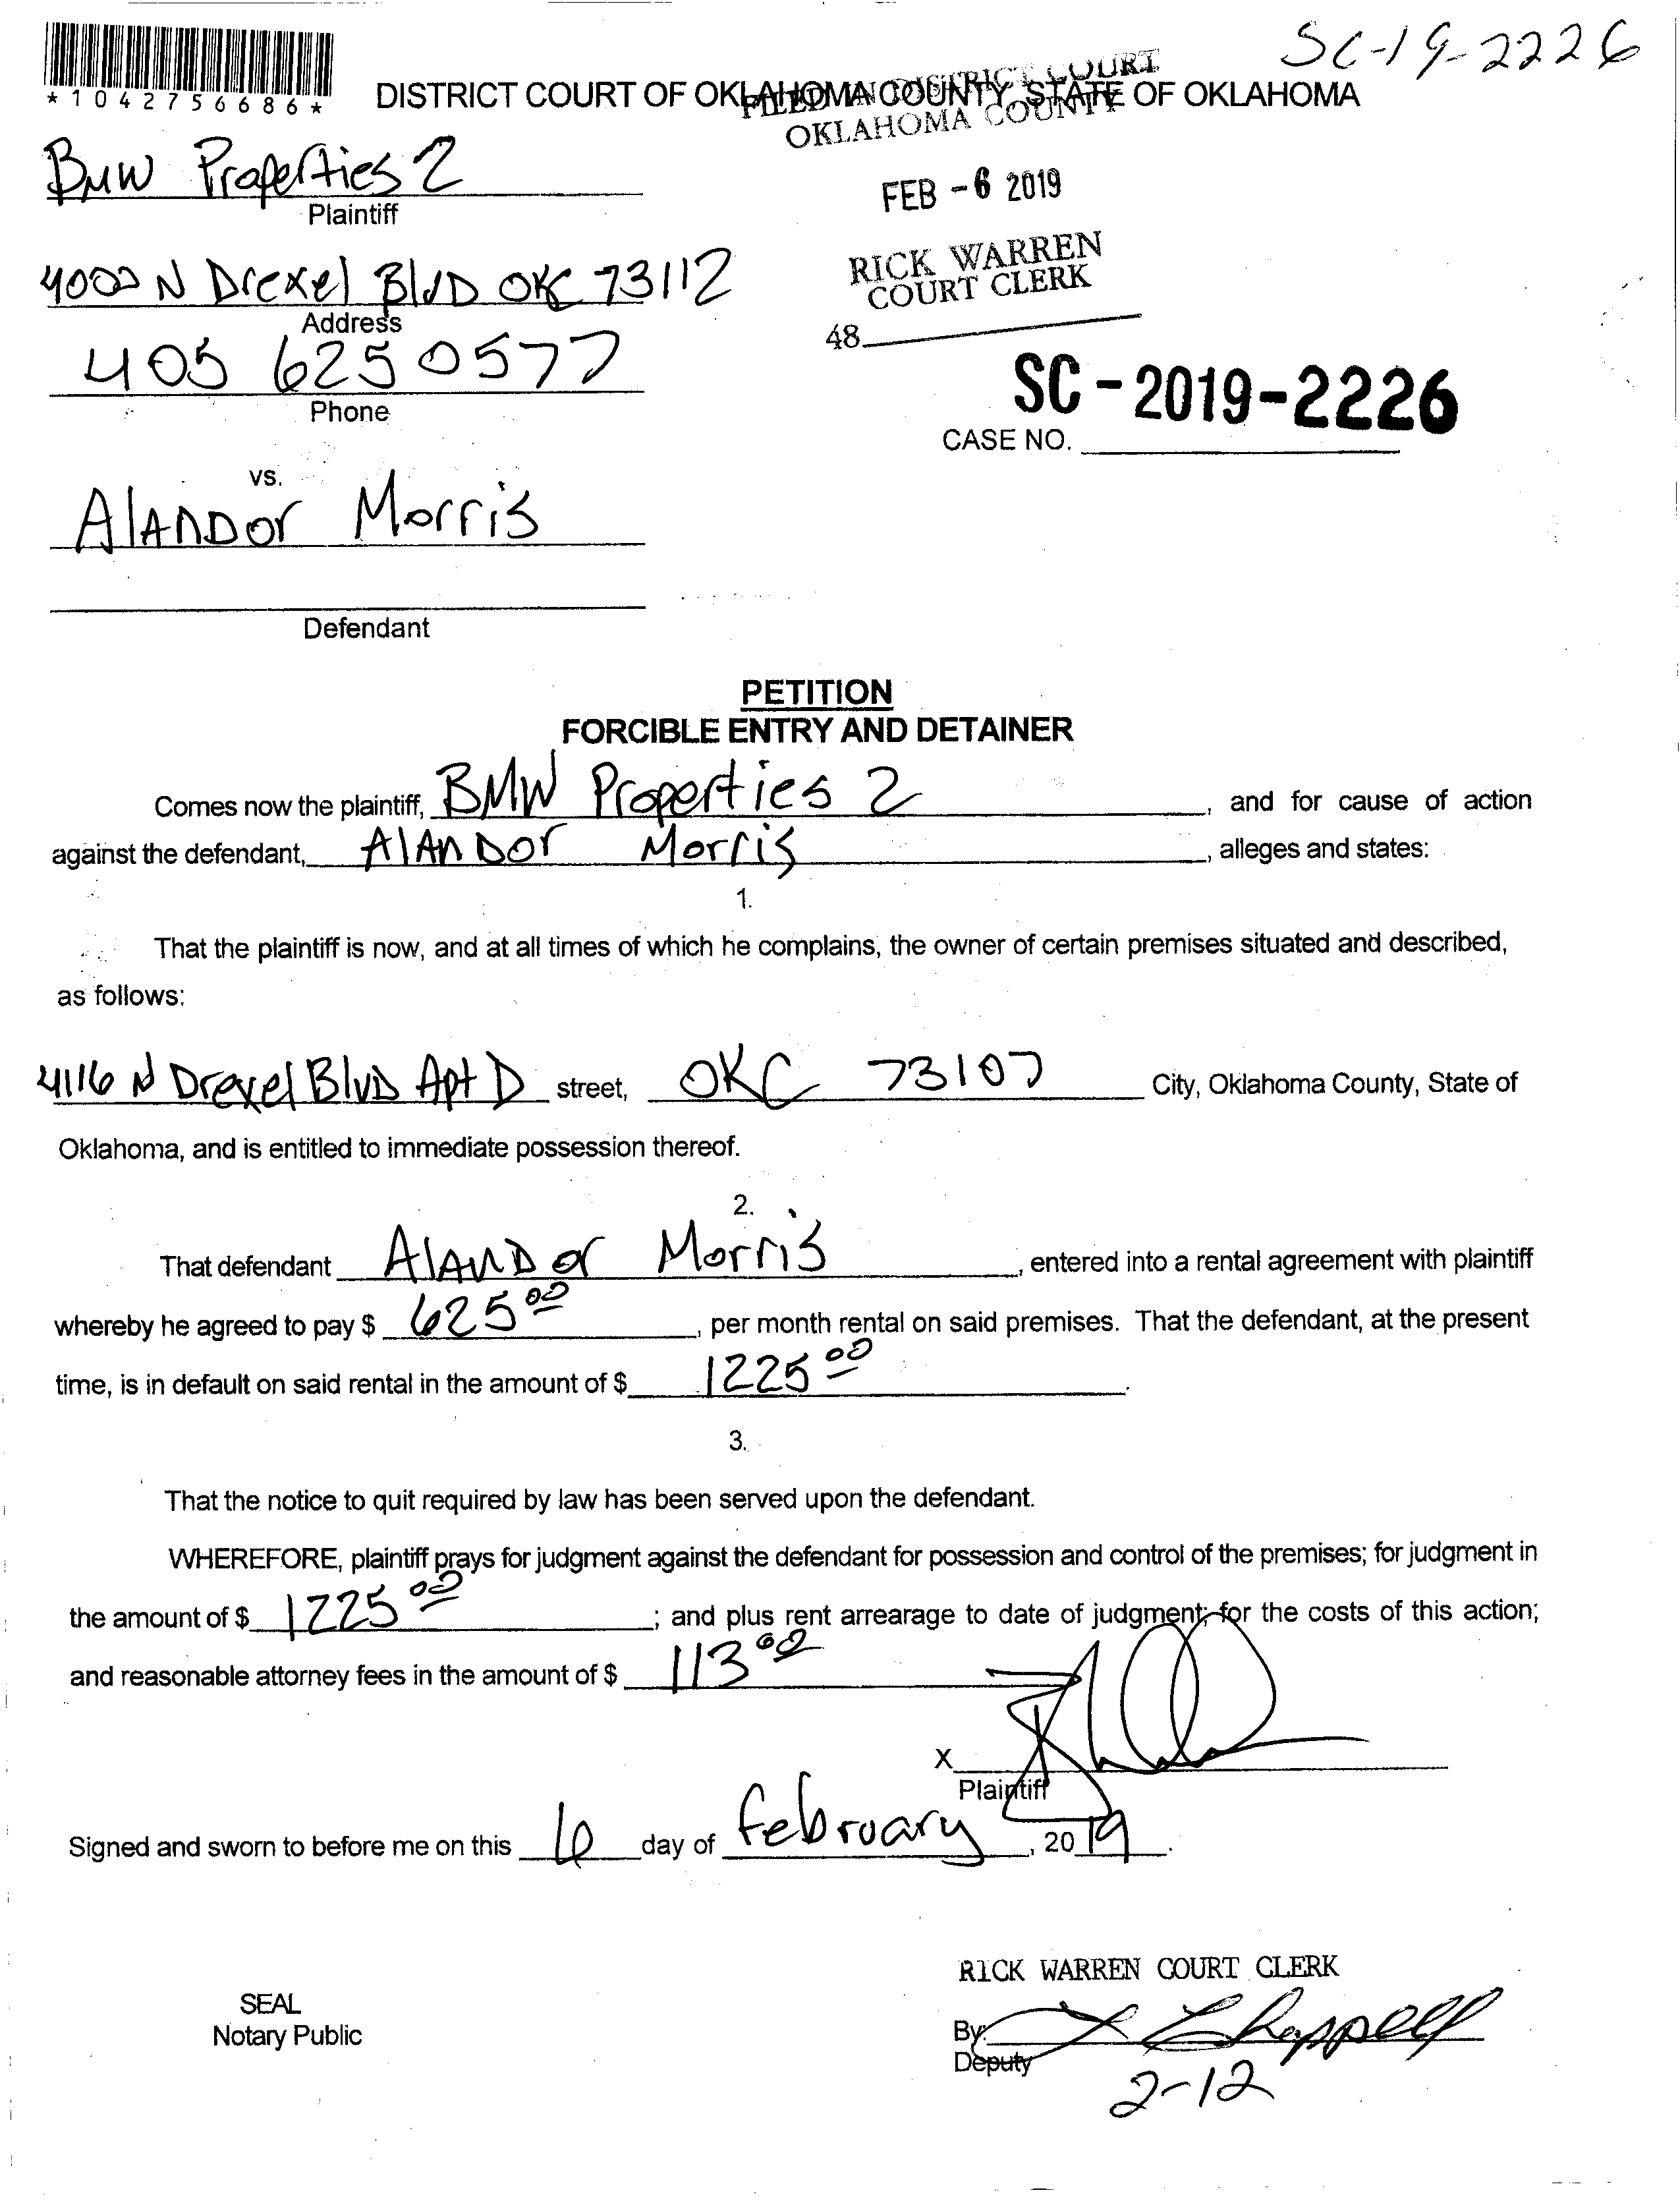 SC-19-2226
*1042756686*
DISTRICT COURT OF OKLAHOMA COUNTY, STATE OF OKLAHOMA
FILED IN DISTRICT COURT
OKLAHOMA COUNTY
BMW Properties 2
Plaintiff
FEB -6 2019
4000 N Drexel BlvD OKC 73112
Address
RICK WARREN
COURT CLERK
48
405 625 0577
Phone
SC-2019-2226
CASE NO.
vs.
AlANDor Morris
Defendant
PETITION
FORCIBLE ENTRY AND DETAINER
Comes now the plaintiff, BMW Properties 2, and for cause of action
against the defendant, AlAnDor Morris, alleges and states:
1.
That the plaintiff is now, and at all times of which he complains, the owner of certain premises situated and described,
as follows:
4116 N Drexel BlvD Apt D street, OKC 73107 City, Oklahoma County, State of
Oklahoma, and is entitled to immediate possession thereof.
2.
That defendant AlANDor Morris, entered into a rental agreement with plaintiff
whereby he agreed to pay $ 625 00, per month rental on said premises. That the defendant, at the present
time, is in default on said rental in the amount of $ 1225 00.
3.
That the notice to quit required by law has been served upon the defendant.
WHEREFORE, plaintiff prays for judgment against the defendant for possession and control of the premises; for judgment in
the amount of $ 1225 00; and plus rent arrearage to date of judgment; for the costs of this action;
and reasonable attorney fees in the amount of $ 113 00
X
Plaintiff
Signed and sworn to before me on this 6 day of February, 2019.
RICK WARREN COURT CLERK
SEAL
Notary Public
By: Chappell
Deputy
2-12